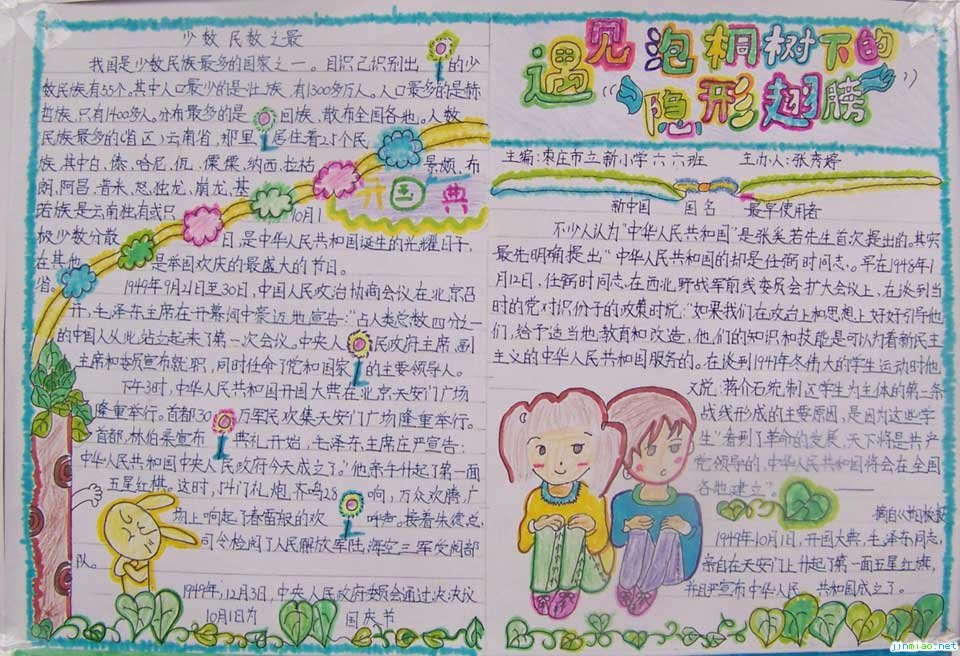 少数民数之最
我国是少数民族最多的国家之一。目识己识别出的少
数民族有55个,其中人口最少的是壮族,有1300多万人。人口最多的是赫
哲族,只有1400多人。分布最多的是回族,散布全国各地。人数
民族最多的(省区)云南省,那里居住着25个民
族,其中白、傣、哈尼、佤、傈僳、纳西、拉祜、景颇、布
朗、阿昌、普米、怒、独龙、崩龙、基
若族是云南独有或只
极少数分散
在其他
省。
开国典
10月1
日,是中华人民共和国诞生的光耀日子,
是举国欢庆的最盛大的节日。
1949年9月21日至30日,中国人民政治协商会议在北京召
开,毛泽东主席在开幕词中豪迈地宣告:"占人类总数四分之一
的中国人从此站立起来了第一次会议。中央人民政府主席,副
主席和委员宣布就职,同时任命了党和国家的主要领导人。
下午3时,中华人民共和国开国大典在北京天安门广场
隆重举行。首都30万军民欢集天安门广场隆重举行。
首都,林伯渠宣布典礼开始,毛泽东主席庄严宣告:
中华人民共和国中央人民政府今天成立了。"他亲午升起了第一面
五星红旗。这时,54门礼炮齐鸣28响,万众欢腾,广
场上响起了春雷般的欢呼声。接着朱德总
司令检阅了人民解放军陆,海空三军受阅部
队。
1949年,12月3日,中央人民政府委员会通过决决议
10月1日为国庆节
遇见泡桐树下的
"隐形翅膀"
主编:枣庄市立新小学六六班 主办人:张秀婷
新中国 国名 最早使用者
不少人认为"中华人民共和国"是张奚若先生首次提出的。其实
最先明确提出"中华人民共和国的却是任弼时同志。早在1948年1
月12日,任弼时同志,在西北野战军前线委员会扩大会议上,在谈到当
时的党对识份子的政策时说:"如果我们在政台上和思想上好好引导他
们,给于适当地教育和改造,他们的知识和技能是可以为着新民主
主义的中华人民共和国服务的。在谈到1947年冬伟大的学生运动时他
又说:蒋介石统制区学生为主体的第二条
战线形成的主要原因,是因为这些学
生"看到了革命的发展,天下将是共产
党领导的,中华人民共和国将会在全国
各地建立"。
摘自
1949年10月1日,开国大典,毛泽东同志,
亲自在天安门上升起了第一面五星红旗,
并且严宣布中华人民共和国成立了。
jinmiao.net